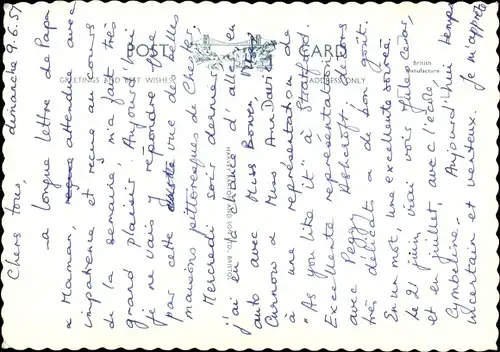 POST CARD
GREETINGS AND BEST WISHES
ADDRESS ONLY
British
Manufacture
dimanche 9.6.57
Chers tous,
La longue lettre de Papa
& Maman, attendue avec
impatience et reçue au cours
de la semaine, m'a fait très
grand plaisir. Aujourd'hui
je ne vais y répondre que
par cette vue de belles
maisons pittoresques de Chester.
Mercredi soir dernier,
j'ai eu la chance d'aller en
auto avec Miss Bower, Miss
Curnow & Miss Ann Davies
à une représentation de
"As you like it" à Stratford
Excellente représentation
avec Peggy Ashcroft; décors
très délicats & de bon goût.
En un mot, une excellente soirée
Le 21 juin, j'irai voir Jules César,
et en juillet, avec l'école,
Cymbeline. Aujourd'hui temps
incertain et venteux. Je m'apprête